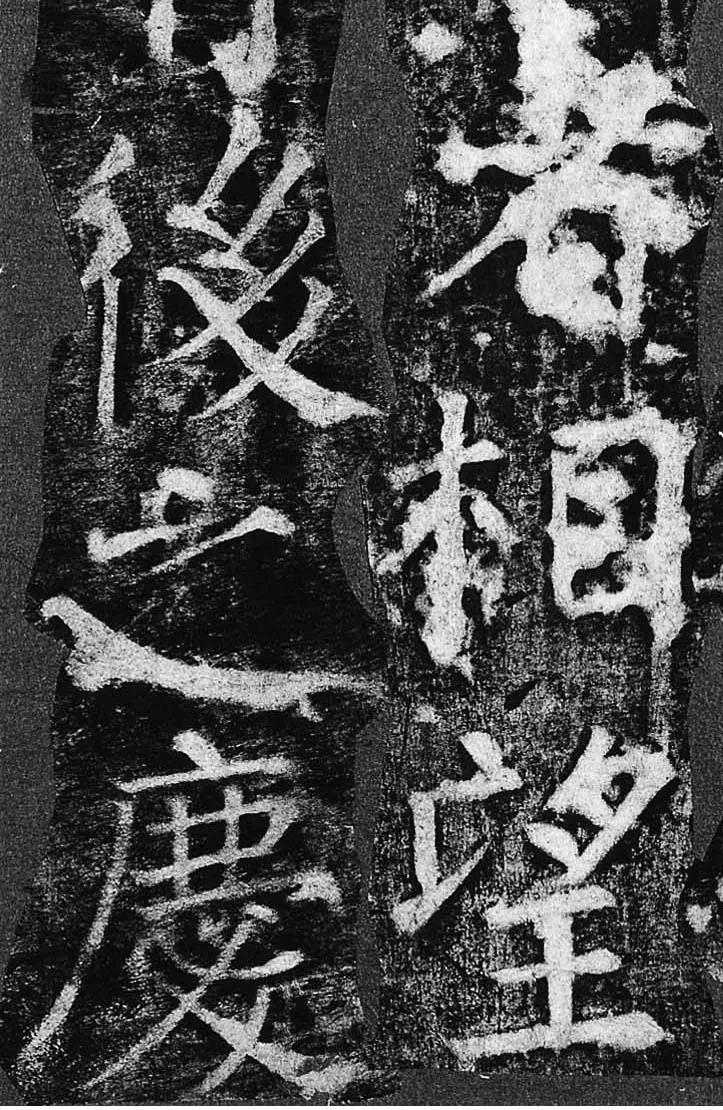 者相望
後之慶